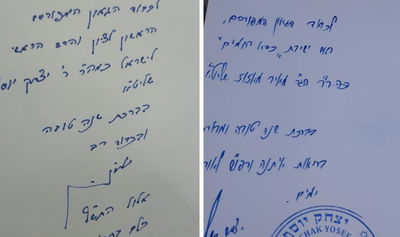 לכבוד הגאון המפורסם
הראשון לציון והרב הראשי
לישראל כמה"ר ר' יצחק יוסף
שליט"א
בברכת שנה טובה
ובכבוד רב
אלול התש"פ
לכבוד הגאון המפורסם,
ראש ישיבת "כסא רחמים"
כה"ר ר' מאיר מאזוז שליט"א
בברכת שנה טובה
בריאות איתנה
ימים.
יצחק יוסף
YITZCHAK YOSEF